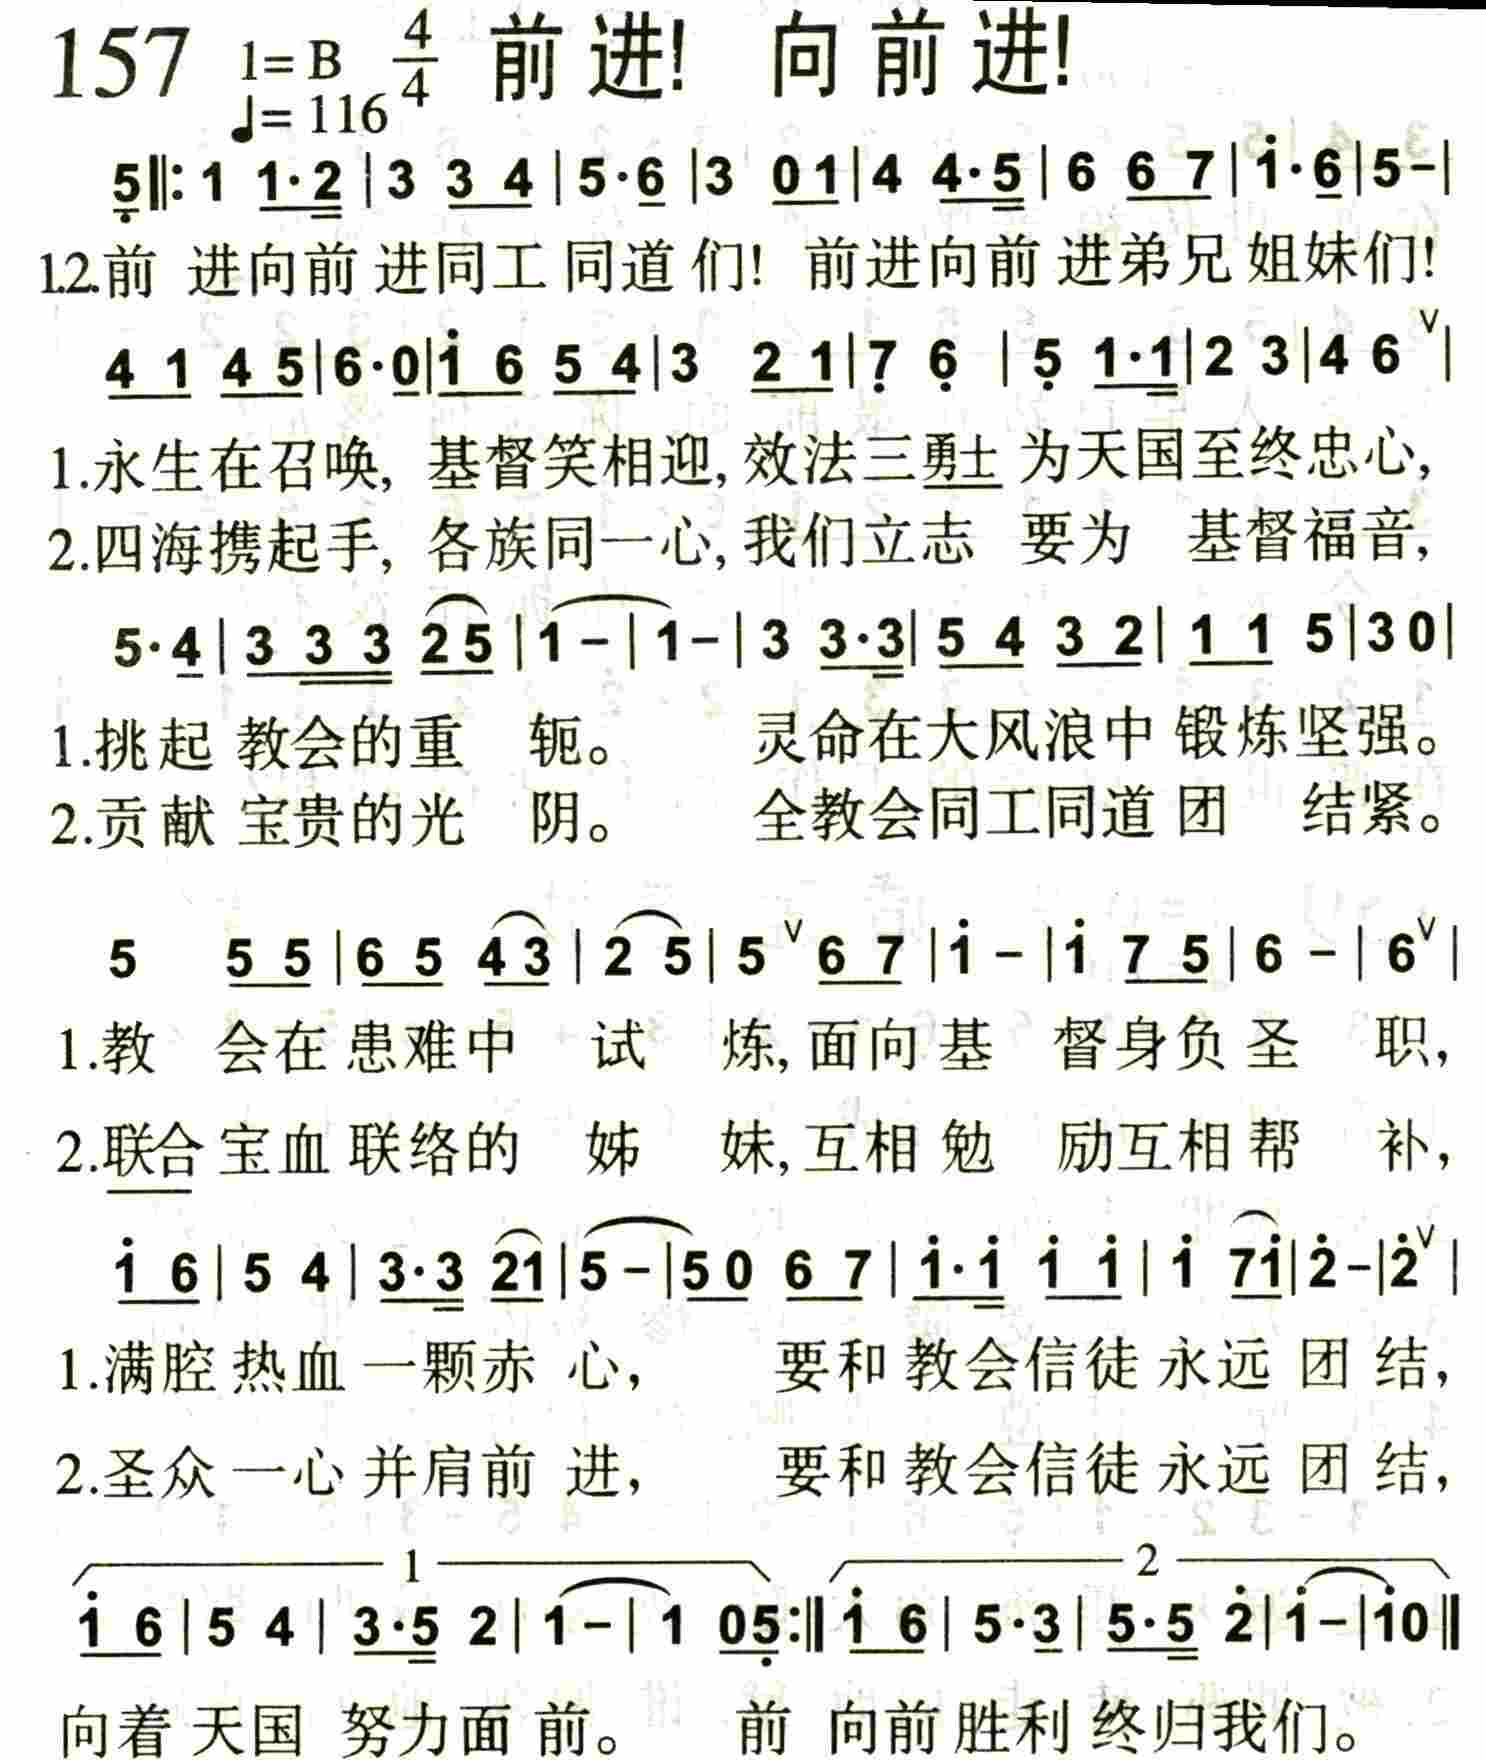 157 1=B 4/4 前进! 向前进!
♩=116
5̣‖: 1 1·2 | 3 3 4 | 5·6 | 3 0 1 | 4 4·5 | 6 6 7 | 1̇·6 | 5 - |
1.2.前 进向前 进同工 同道们! 前进向前 进弟兄 姐妹们!
4 1 4 5 | 6·0 | 1̇ 6 5 4 | 3 2 1 | 7̣ 6̣ | 5̣ 1·1 | 2 3 | 4 6 ∨ |
1.永生在召唤, 基督笑相迎,效法三勇士 为天国至终忠心,
2.四海携起手, 各族同一心,我们立志 要为 基督福音,
5·4 | 3 3 3 2 5 | 1 - | 1 - | 3 3·3 | 5 4 3 2 | 1 1 5 | 3 0 |
1.挑起 教会的重 轭。 灵命在大风浪中 锻炼坚强。
2.贡献 宝贵的光 阴。 全教会同工同道 团 结紧。
5 5 5 | 6 5 4 3 | 2 5 | 5 ∨ 6 7 | 1̇ - | 1̇ 7 5 | 6 - | 6 ∨ |
1.教 会在患难中 试 炼,面向基 督身负圣 职,
2.联合宝血 联络的 姊 妹,互相勉 励互相帮 补,
1̇ 6 | 5 4 | 3·3 21 | 5 - | 5 0 6 7 | 1̇·1̇ 1̇ 1̇ | 1̇ 71̇ | 2̇ - | 2̇ ∨ |
1.满腔热血 一颗赤 心, 要和教会信徒 永远 团结,
2.圣众一心 并肩前 进, 要和教会信徒 永远 团结,
1 2
1̇ 6 | 5 4 | 3·5 2 | 1 - | 1 05̣ :‖ 1̇ 6 | 5·3 | 5·5 2̇ | 1̇ - | 1̇0 ‖
向着天国 努力面前。 前 向前胜利 终归我们。